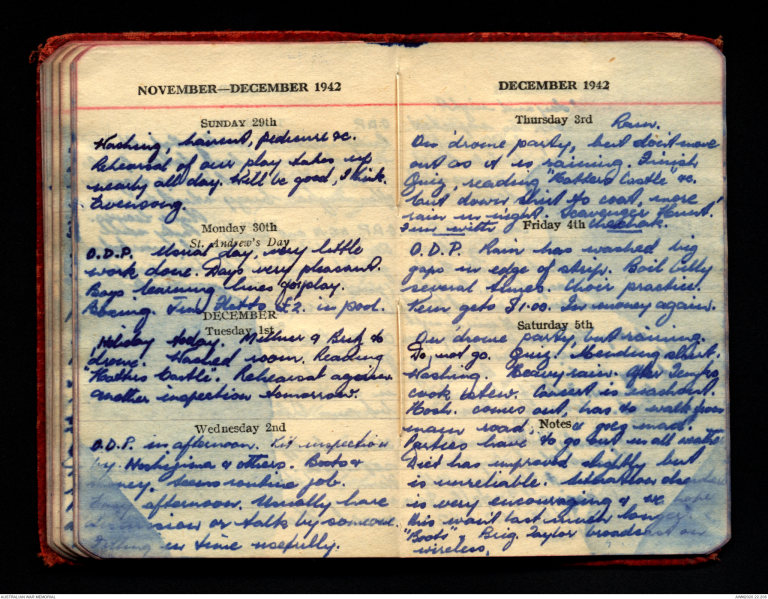 NOVEMBER—DECEMBER 1942
SUNDAY 29th
Washing, haircut, pedicure &c.
Rehearsal of our play takes up
nearly all day. Will be good, I think.
Evensong.
Monday 30th
St. Andrew's Day
O.D.P. Usual day, very little
work done. Days very pleasant.
Boys learning lines for play.
Boxing. Tim £2. in pool.
DECEMBER
Tuesday 1st
Holiday today. & to
drome. Washed room. Reading
"Hatters Castle". Rehearsal again
another inspection tomorrow.
Wednesday 2nd
O.D.P. in afternoon. Kit inspection
by & others. Boots &
money. Seems routine job.
afternoon. Usually have
a or talk by someone.
in time usefully.
DECEMBER 1942
Thursday 3rd Rain.
On 'drome party, but don't move
out as it is raining. Finish
Quiz, reading "Hatters Castle" &c.
Cut down shirt to coat, more
rain in night. Scavenger Hunt!
I win with
Friday 4th
O.D.P. Rain has washed big
gaps in edge of strip. Boil Billy
several times. Choir practice.
Kem gets $1.00. In money again.
Saturday 5th
On 'drome party, but raining.
Do not go. Quiz. Mending shirt.
Washing. Heavy rain. After Tenko
cook stew. Concert is washout.
Hosh. comes out, has to walk from
main road.
Notes
Parties have to go out in all weather
Diet has improved slightly but
is unreliable.
is very encouraging & we hope
this won't last much longer.
"Boots", Brig Taylor broadcast on
wireless.
AUSTRALIAN WAR MEMORIAL